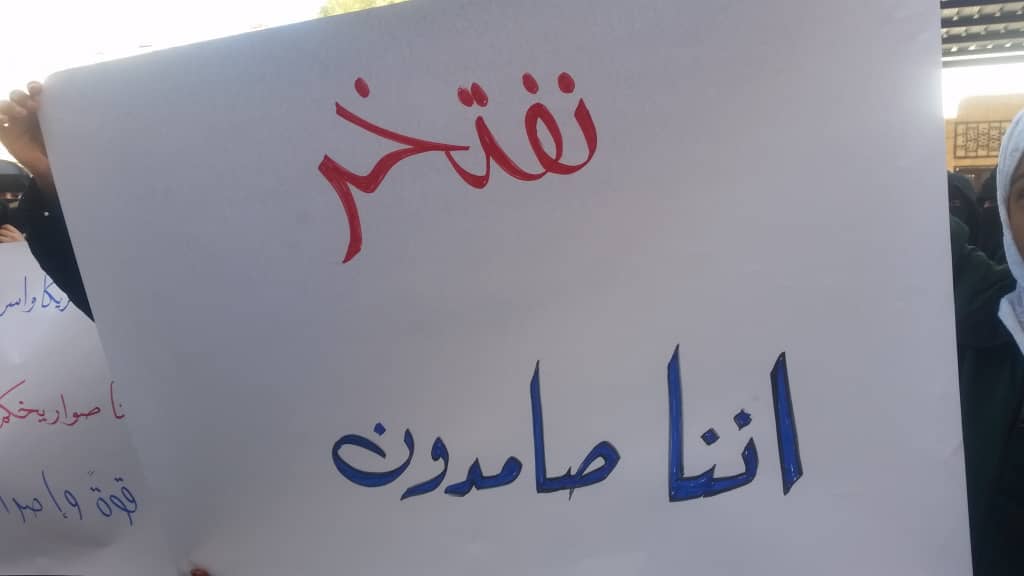 نفتخر
اننا صامدون
نا صواريخكم
قوةً وإصرا